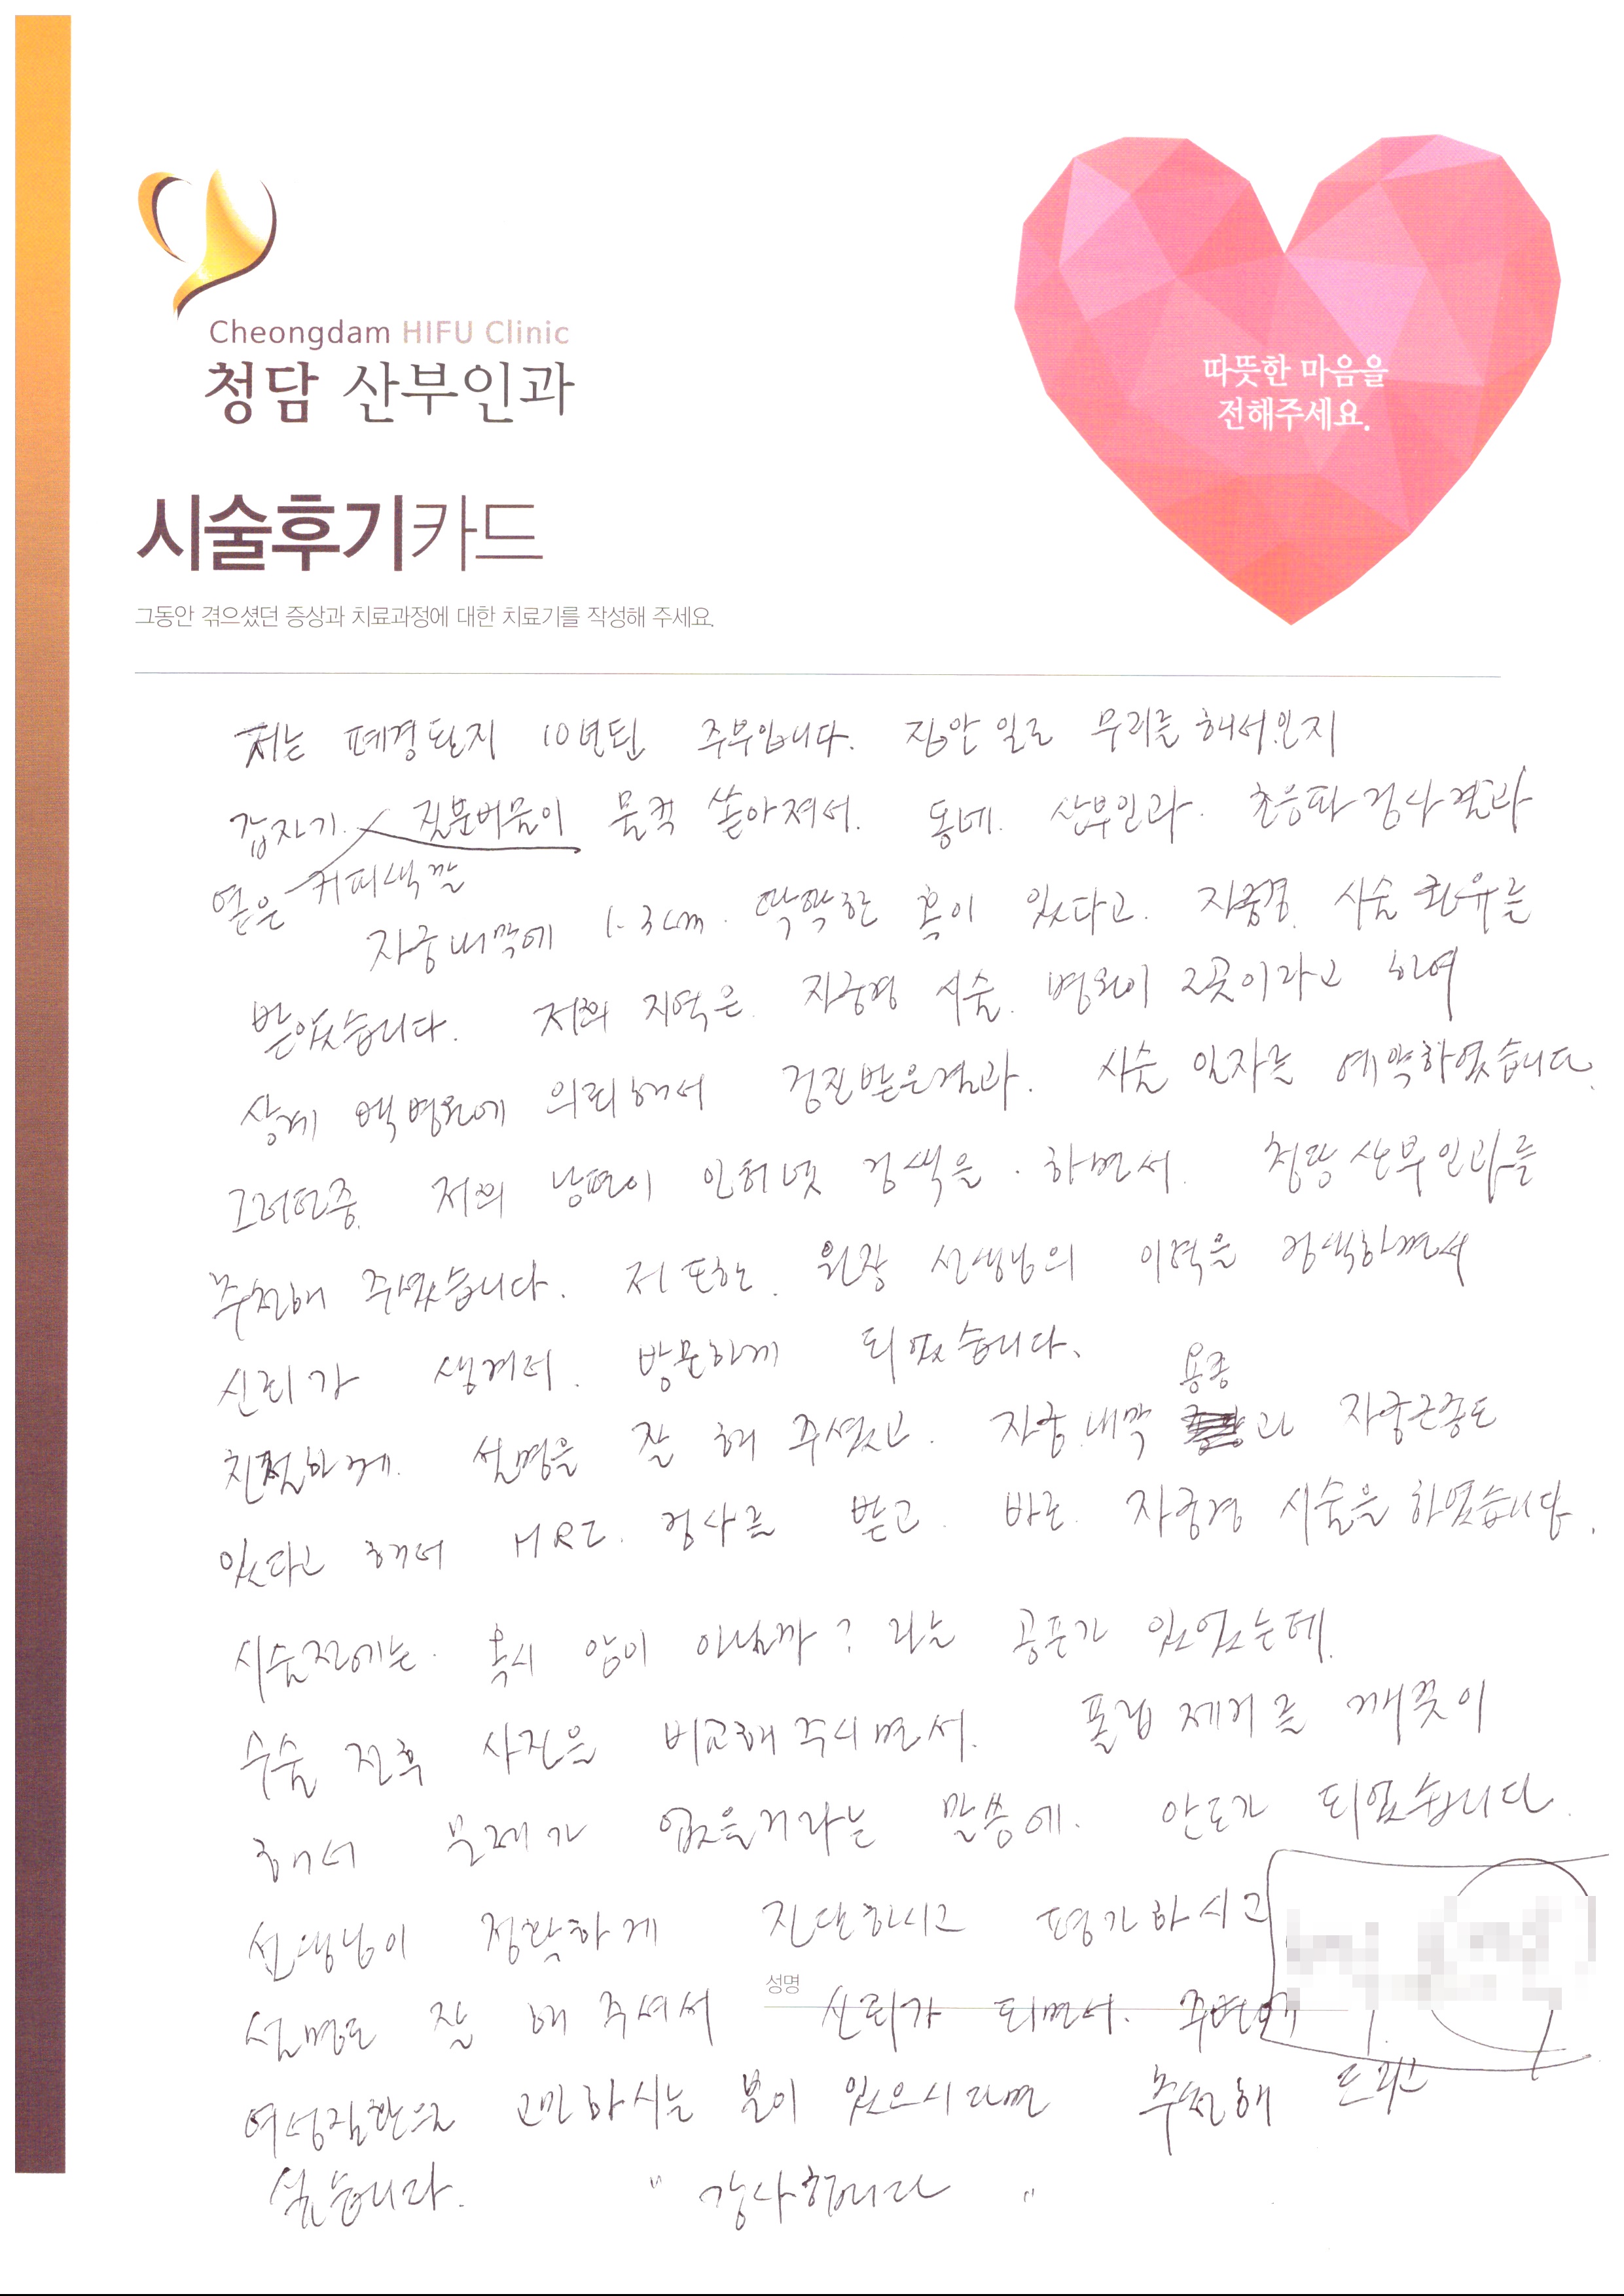 Cheongdam HIFU Clinic
청담 산부인과
따뜻한 마음을
전해주세요.
시술후기카드
그동안 겪으셨던 증상과 치료과정에 대한 치료기를 작성해 주세요.
저는 폐경된지 10년된 주부입니다. 집안일로 무리를 해서인지
갑자기 질분비물이 물컥 쏟아져서. 동네. 산부인과. 초음파 검사결과
옅은 커피색깔
자궁내막에 1.3cm. 딱딱한 혹이 있다고. 자궁경. 시술 권유를
받았습니다. 저희 지역은 자궁경 시술. 병원이 2곳이라고 하여
상계 백병원에 의뢰해서 검진받은결과. 시술 일자를 예약하였습니다.
그러던중. 저희 남편이 인터넷 검색을 하면서. 청담산부인과를
추천해 주었습니다. 저 또한. 원장 선생님의 이력을 검색하면서
신뢰가 생겨서. 방문하게 되었습니다.
용종
친절하게. 설명을 잘 해 주셨고. 자궁.내막 과 자궁근종도
있다고 해서 MRI. 검사를 받고. 바로. 자궁경 시술을 하였습니다.
시술전에는. 혹시 암이 아닐까? 라는 공포가 있었는데.
수술 전후 사진을 비교해 주시면서. 폴립 제거를 깨끗이
해서 문제가 없을거라는 말씀에. 안도가 되었습니다.
선생님이 정확하게 진단하시고 평가하시고
성명
설명도 잘 해 주셔서 신뢰가 되면서. 주변에
여성질환으로 고민하시는 분이 있으시다면 추천해 드리고
싶습니다. " 감사합니다 "